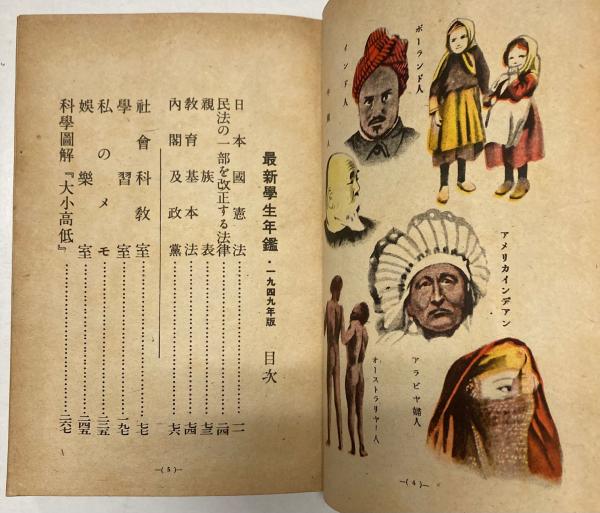 ポーランド人
インド人
中國人
アメリカインデアン
アラビヤ婦人
オーストラリヤー人
—(4)—
最新學生年鑑・一九四九年版 目次
日本國憲法……………一
民法の一部を改正する法律……………二四
親族表……………七三
教育基本法……………七四
內閣及政黨……………七六
社會科教室……………
學習室……………一九七
私のメモ……………二三五
娛樂室……………二四五
科學圖解『大小高低』……………二六七
—(5)—